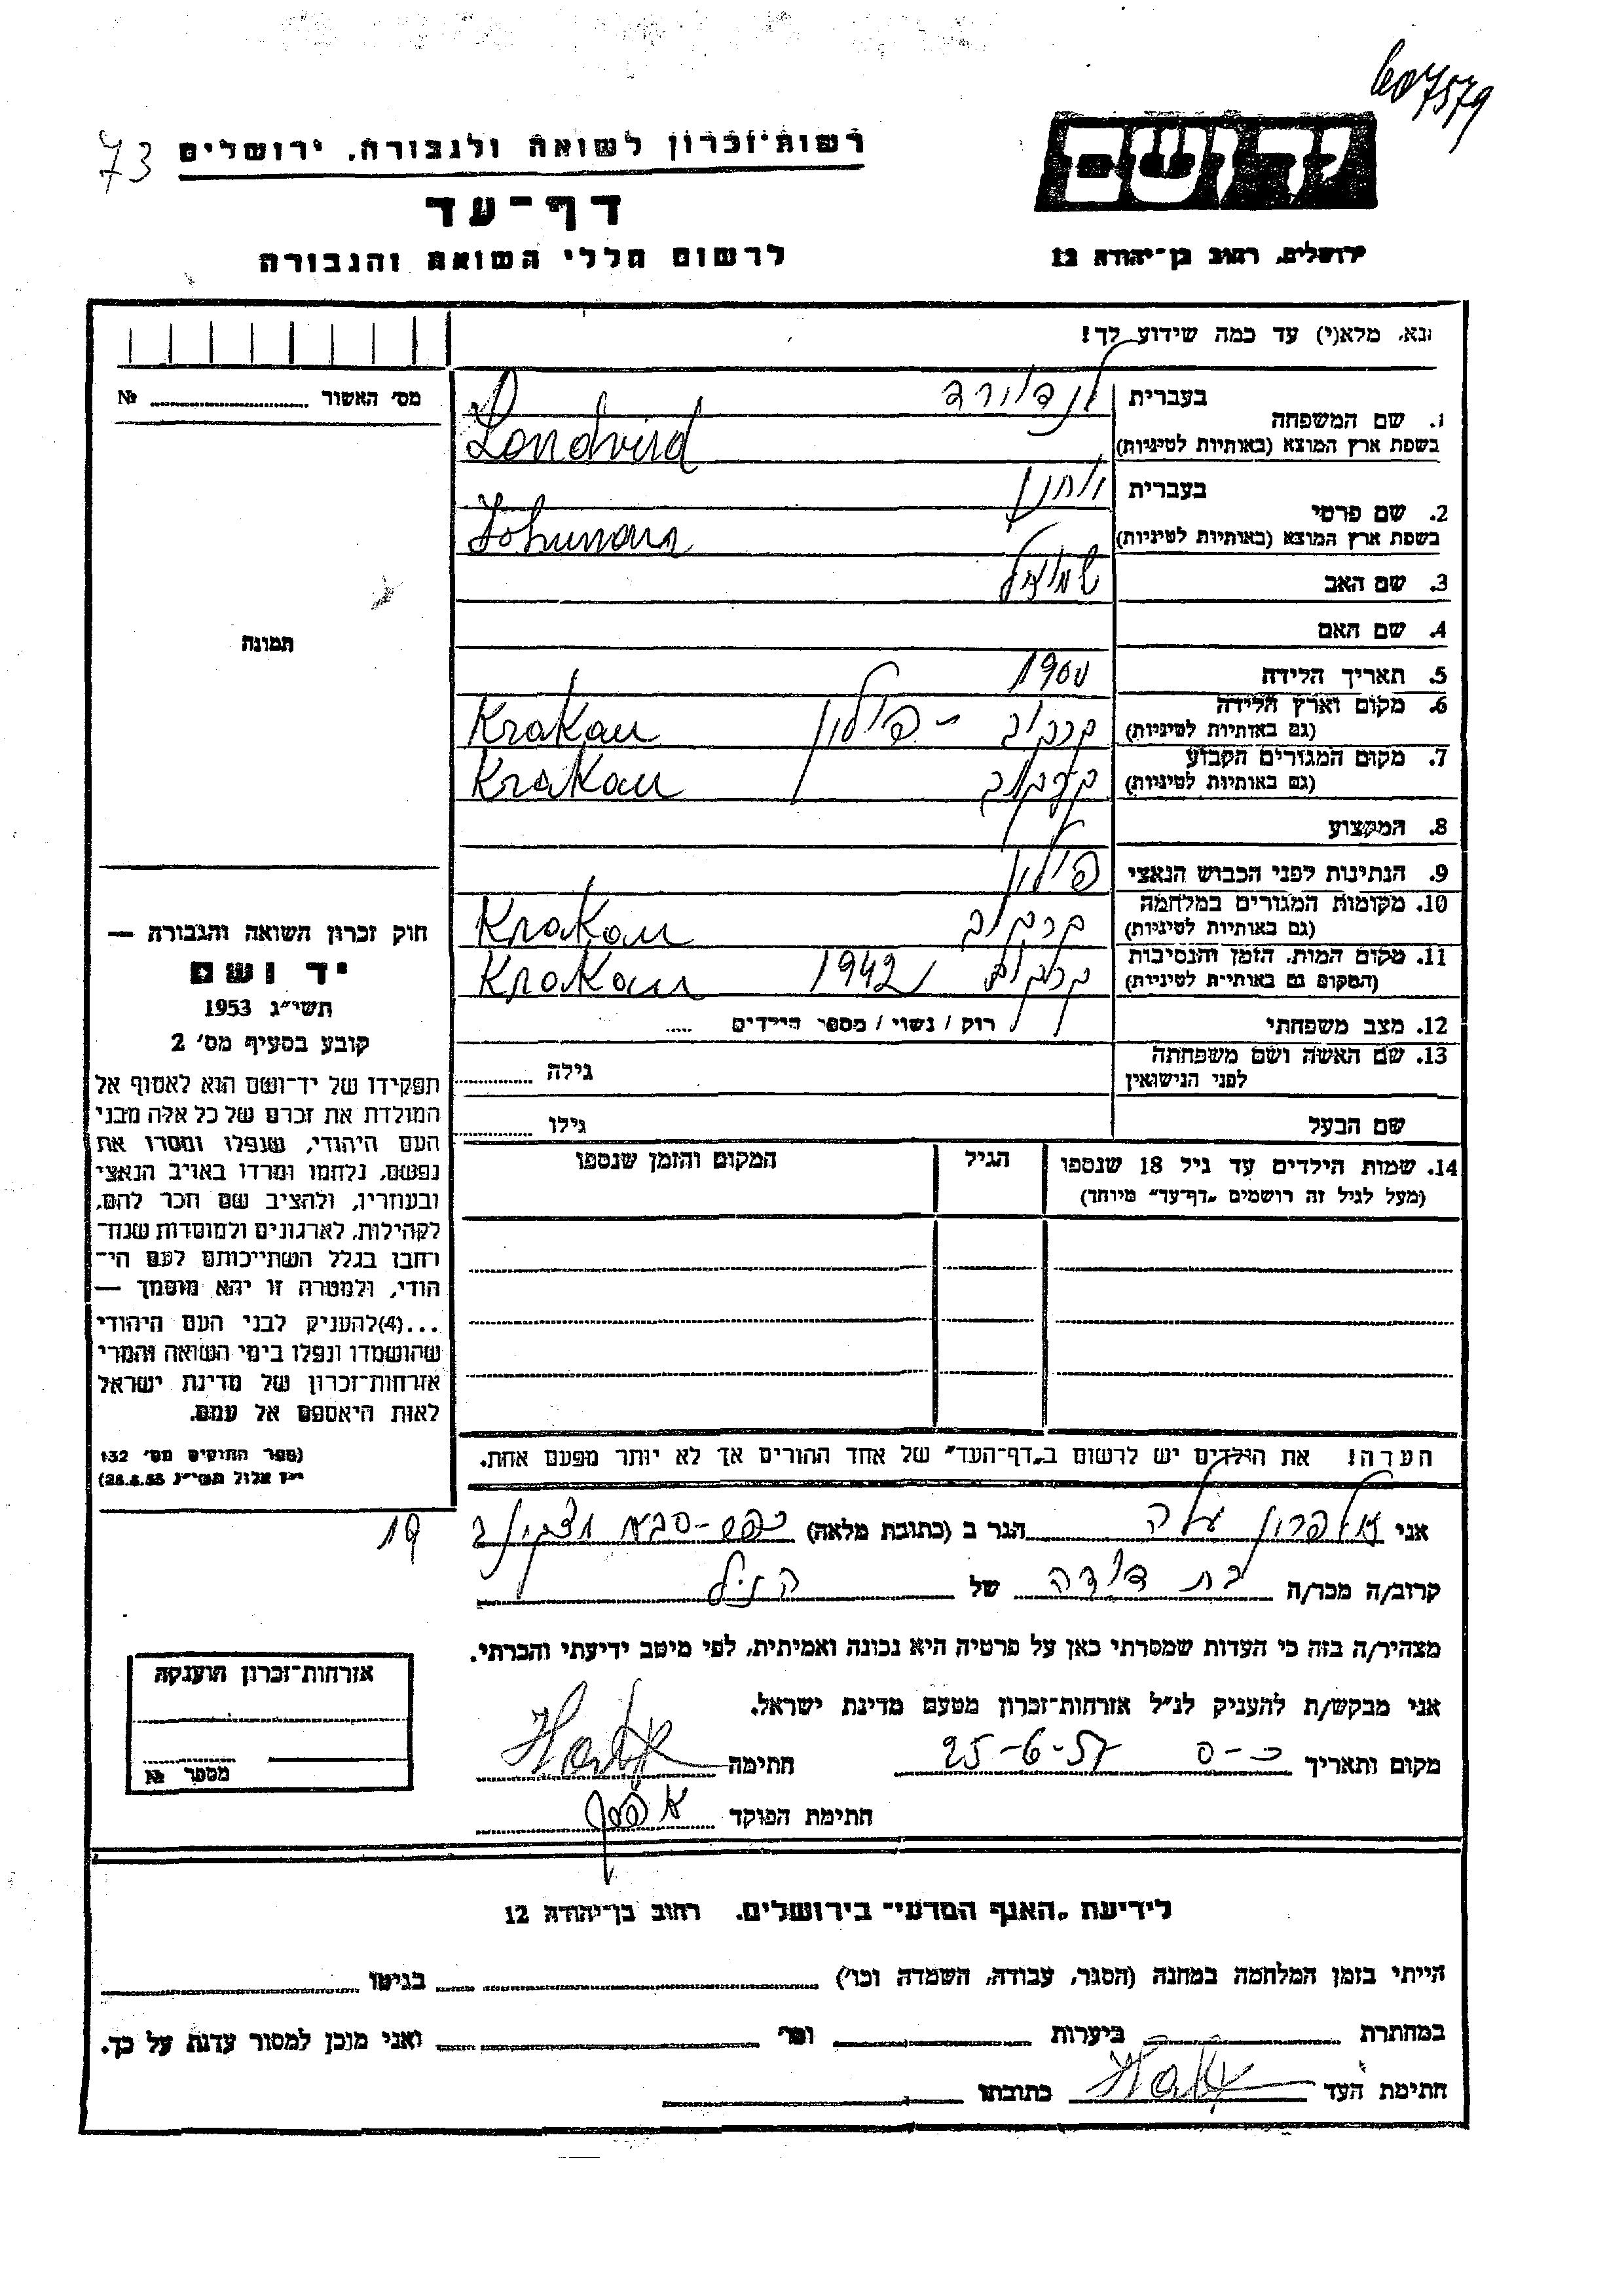 607579
73
רשות־זכרון לשואה ולגבורה, ירושלים
יד ושם
דף־עד
לרשום חללי השואה והגבורה
ירושלים, רחוב בן־יהודה 12
נא, מלא(י) עד כמה שידוע לך!
מס׳ האשור №
1. שם המשפחה
בעברית
בשפת ארץ המוצא (באותיות לטיניות)
Landvird
2. שם פרטי
בעברית
בשפת ארץ המוצא (באותיות לטיניות)
3. שם האב שמואל
4. שם האם
תמונה
5. תאריך הלידה 1900
6. מקום וארץ הלידה
(גם באותיות לטיניות)
קרקוב - פולין Krakau
7. מקום המגורים הקבוע
(גם באותיות לטיניות)
קרקוב Krakau
8. המקצוע
9. הנתינות לפני הכבוש הנאצי פולין
10. מקומות המגורים במלחמה
(גם באותיות לטיניות)
קרקוב Krakau
11. מקום המות, הזמן והנסיבות
(המקום גם באותיות לטיניות)
קרקוב, 1942 Krakau
12. מצב משפחתי רוק / נשוי / מספר הילדים
13. שם האשה ושם משפחתה
לפני הנישואין
גילה
שם הבעל גילו
14. שמות הילדים עד גיל 18 שנספו
(מעל לגיל זה רושמים „דף־עד” מיוחד)
הגיל
המקום והזמן שנספו
הערה! את הילדים יש לרשום ב„דף־העד” של אחד ההורים אך לא יותר מפעם אחת.
חוק זכרון השואה והגבורה —
יד ושם
תשי״ג 1953
קובע בסעיף מס׳ 2
תפקידו של יד־ושם הוא לאסוף אל
המולדת את זכרם של כל אלה מבני
העם היהודי, שנפלו ומסרו את
נפשם, נלחמו ומרדו באויב הנאצי
ובעוזריו, ולהציב שם וזכר להם,
לקהילות, לארגונים ולמוסדות שנח־
רחבו בגלל השתייכותם לעם הי־
הודי, ולמטרה זו יהא מוסמך —
...(4)להעניק לבני העם היהודי
שהושמדו ונפלו בימי השואה והמרי
אזרחות־זכרון של מדינת ישראל
לאות היאספם אל עמם.
(ספר החוקים מס׳ 132
י״ז אלול תשי״ג 28.8.53)
אני הגר ב (כתובת מלאה) כפר-סבא 19
קרוב/ה מכר/ה בת דודה של הנ״ל
מצהיר/ה בזה כי העדות שמסרתי כאן על פרטיה היא נכונה ואמיתית, לפי מיטב ידיעתי והכרתי.
אני מבקש/ת להעניק לנ״ל אזרחות־זכרון מטעם מדינת ישראל.
מקום ותאריך כ-ס 25-6-57 חתימה
חתימת הפוקד
אזרחות־זכרון הוענקה
מספר №
לידיעת „האגף המדעי” בירושלים, רחוב בן־יהודה 12
הייתי בזמן המלחמה במחנה (הסגר, עבודה, השמדה וכו׳) בגיטו
במחתרת ביערות וכו׳ ואני מוכן למסור עדות על כך.
חתימת העד כתובתו